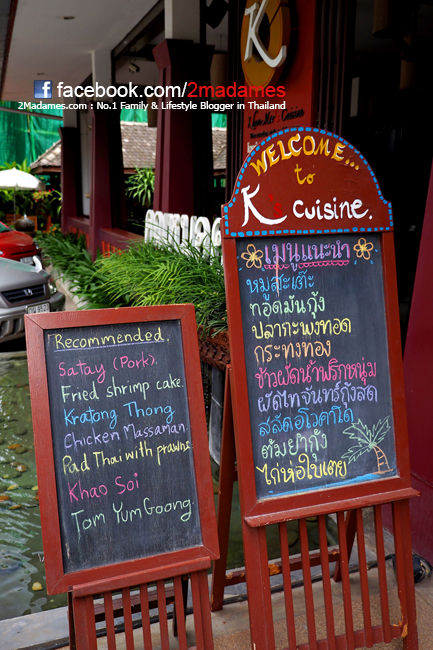 facebook.com/2madames
2Madames.com : No.1 Family & Lifestyle Blogger in Thailand
K
WELCOME...
to
K. Cuisine.
เมนูแนะนำ
หมูสะเต๊ะ
ทอดมันกุ้ง
ปลากะพงทอด
กระทงทอง
ข้าวผัดน้ำพริกหนุ่ม
ผัดไทจันทร์กุ้งสด
สลัดอโวคาโด้
ต้มยำกุ้ง
ไก่ห่อใบเตย
Recommended.
Satay (Pork).
Fried shrimp cake.
Kratong Thong
Chicken Massaman.
Pad Thai with prawns
Khao Soi
Tom Yum Goong.